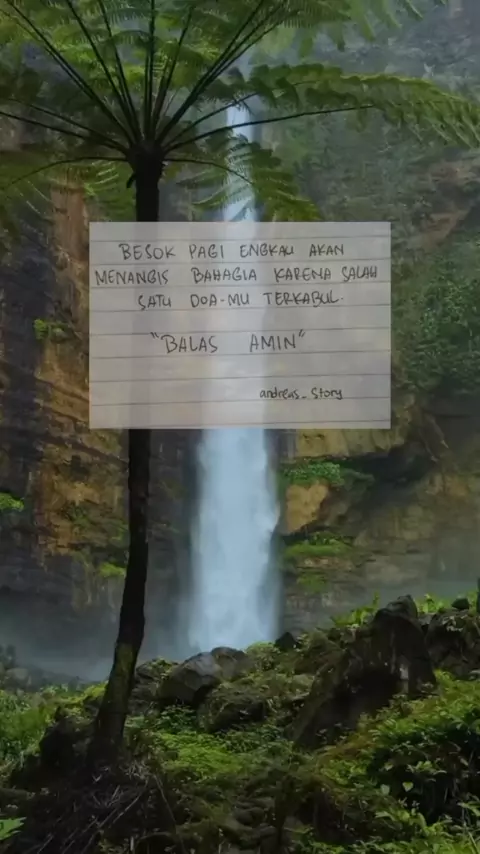 BESOK PAGI ENGKAU AKAN
MENANGIS BAHAGIA KARENA SALAH
SATU DOA-MU TERKABUL.
"BALAS AMIN"
andreas_story